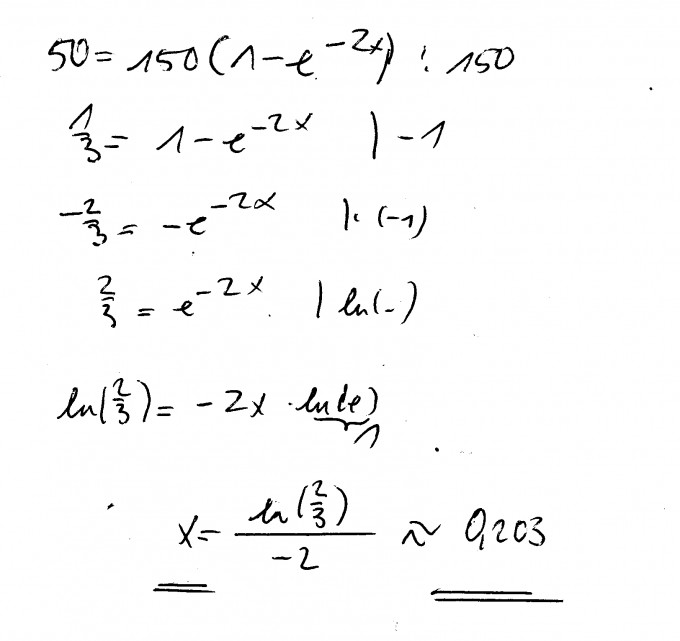 50 = 150(1-e^{-2x}) : 150
\frac{1}{3} = 1-e^{-2x} | -1
-\frac{2}{3} = -e^{-2x} | · (-1)
\frac{2}{3} = e^{-2x} | ln(-)
ln(\frac{2}{3}) = -2x · \underbrace{ln(e)}_{1}
x = \frac{ln(\frac{2}{3})}{-2} ≈ 0,203